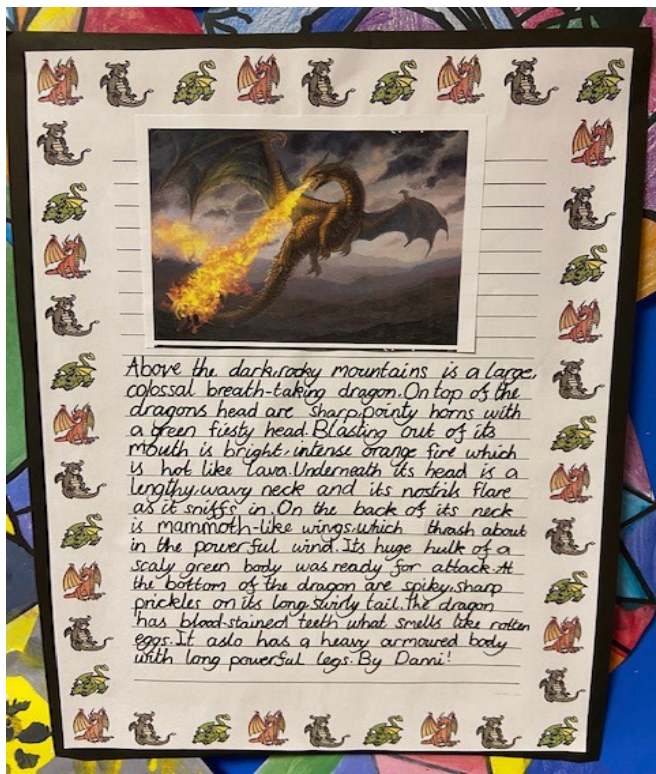 Above the dark,rocky mountains is a large,
colossal breath-taking dragon. On top of the
dragons head are sharp,pointy horns with
a green fiesty head. Blasting out of its
mouth is bright, intense orange fire which
is hot like lava. Underneath its head is a
lengthy,wavy neck and its nostrils flare
as it sniffs in. On the back of its neck
is mammoth-like wings,which thrash about
in the powerful wind. Its huge hulk of a
scaly green body was ready for attack. At
the bottom of the dragon are spiky,sharp
prickles on its long,swirly tail. The dragon
has blood-stained teeth what smells like rotten
eggs. It aslo has a heavy armoured body
with long powerful legs. By Danni!